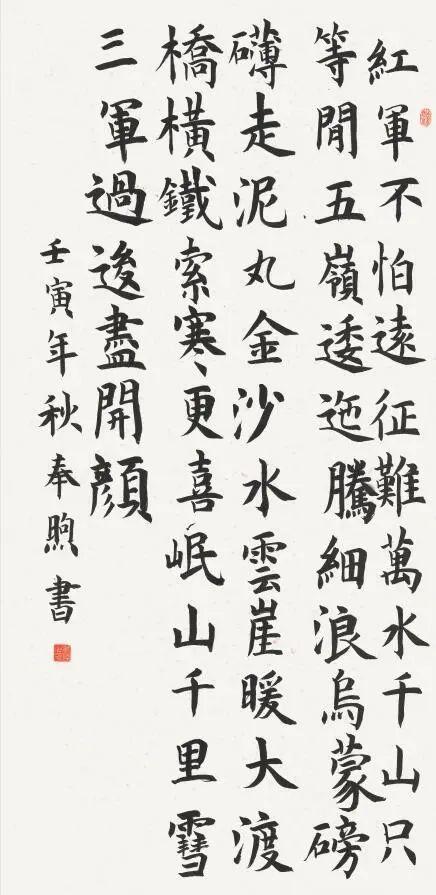 紅軍不怕遠征難萬水千山只
等閒五嶺逶迤騰細浪烏蒙磅
礴走泥丸金沙水雲崖暖大渡
橋橫鐵索寒更喜岷山千里雪
三軍過後盡開顏
壬寅年秋奉煦書